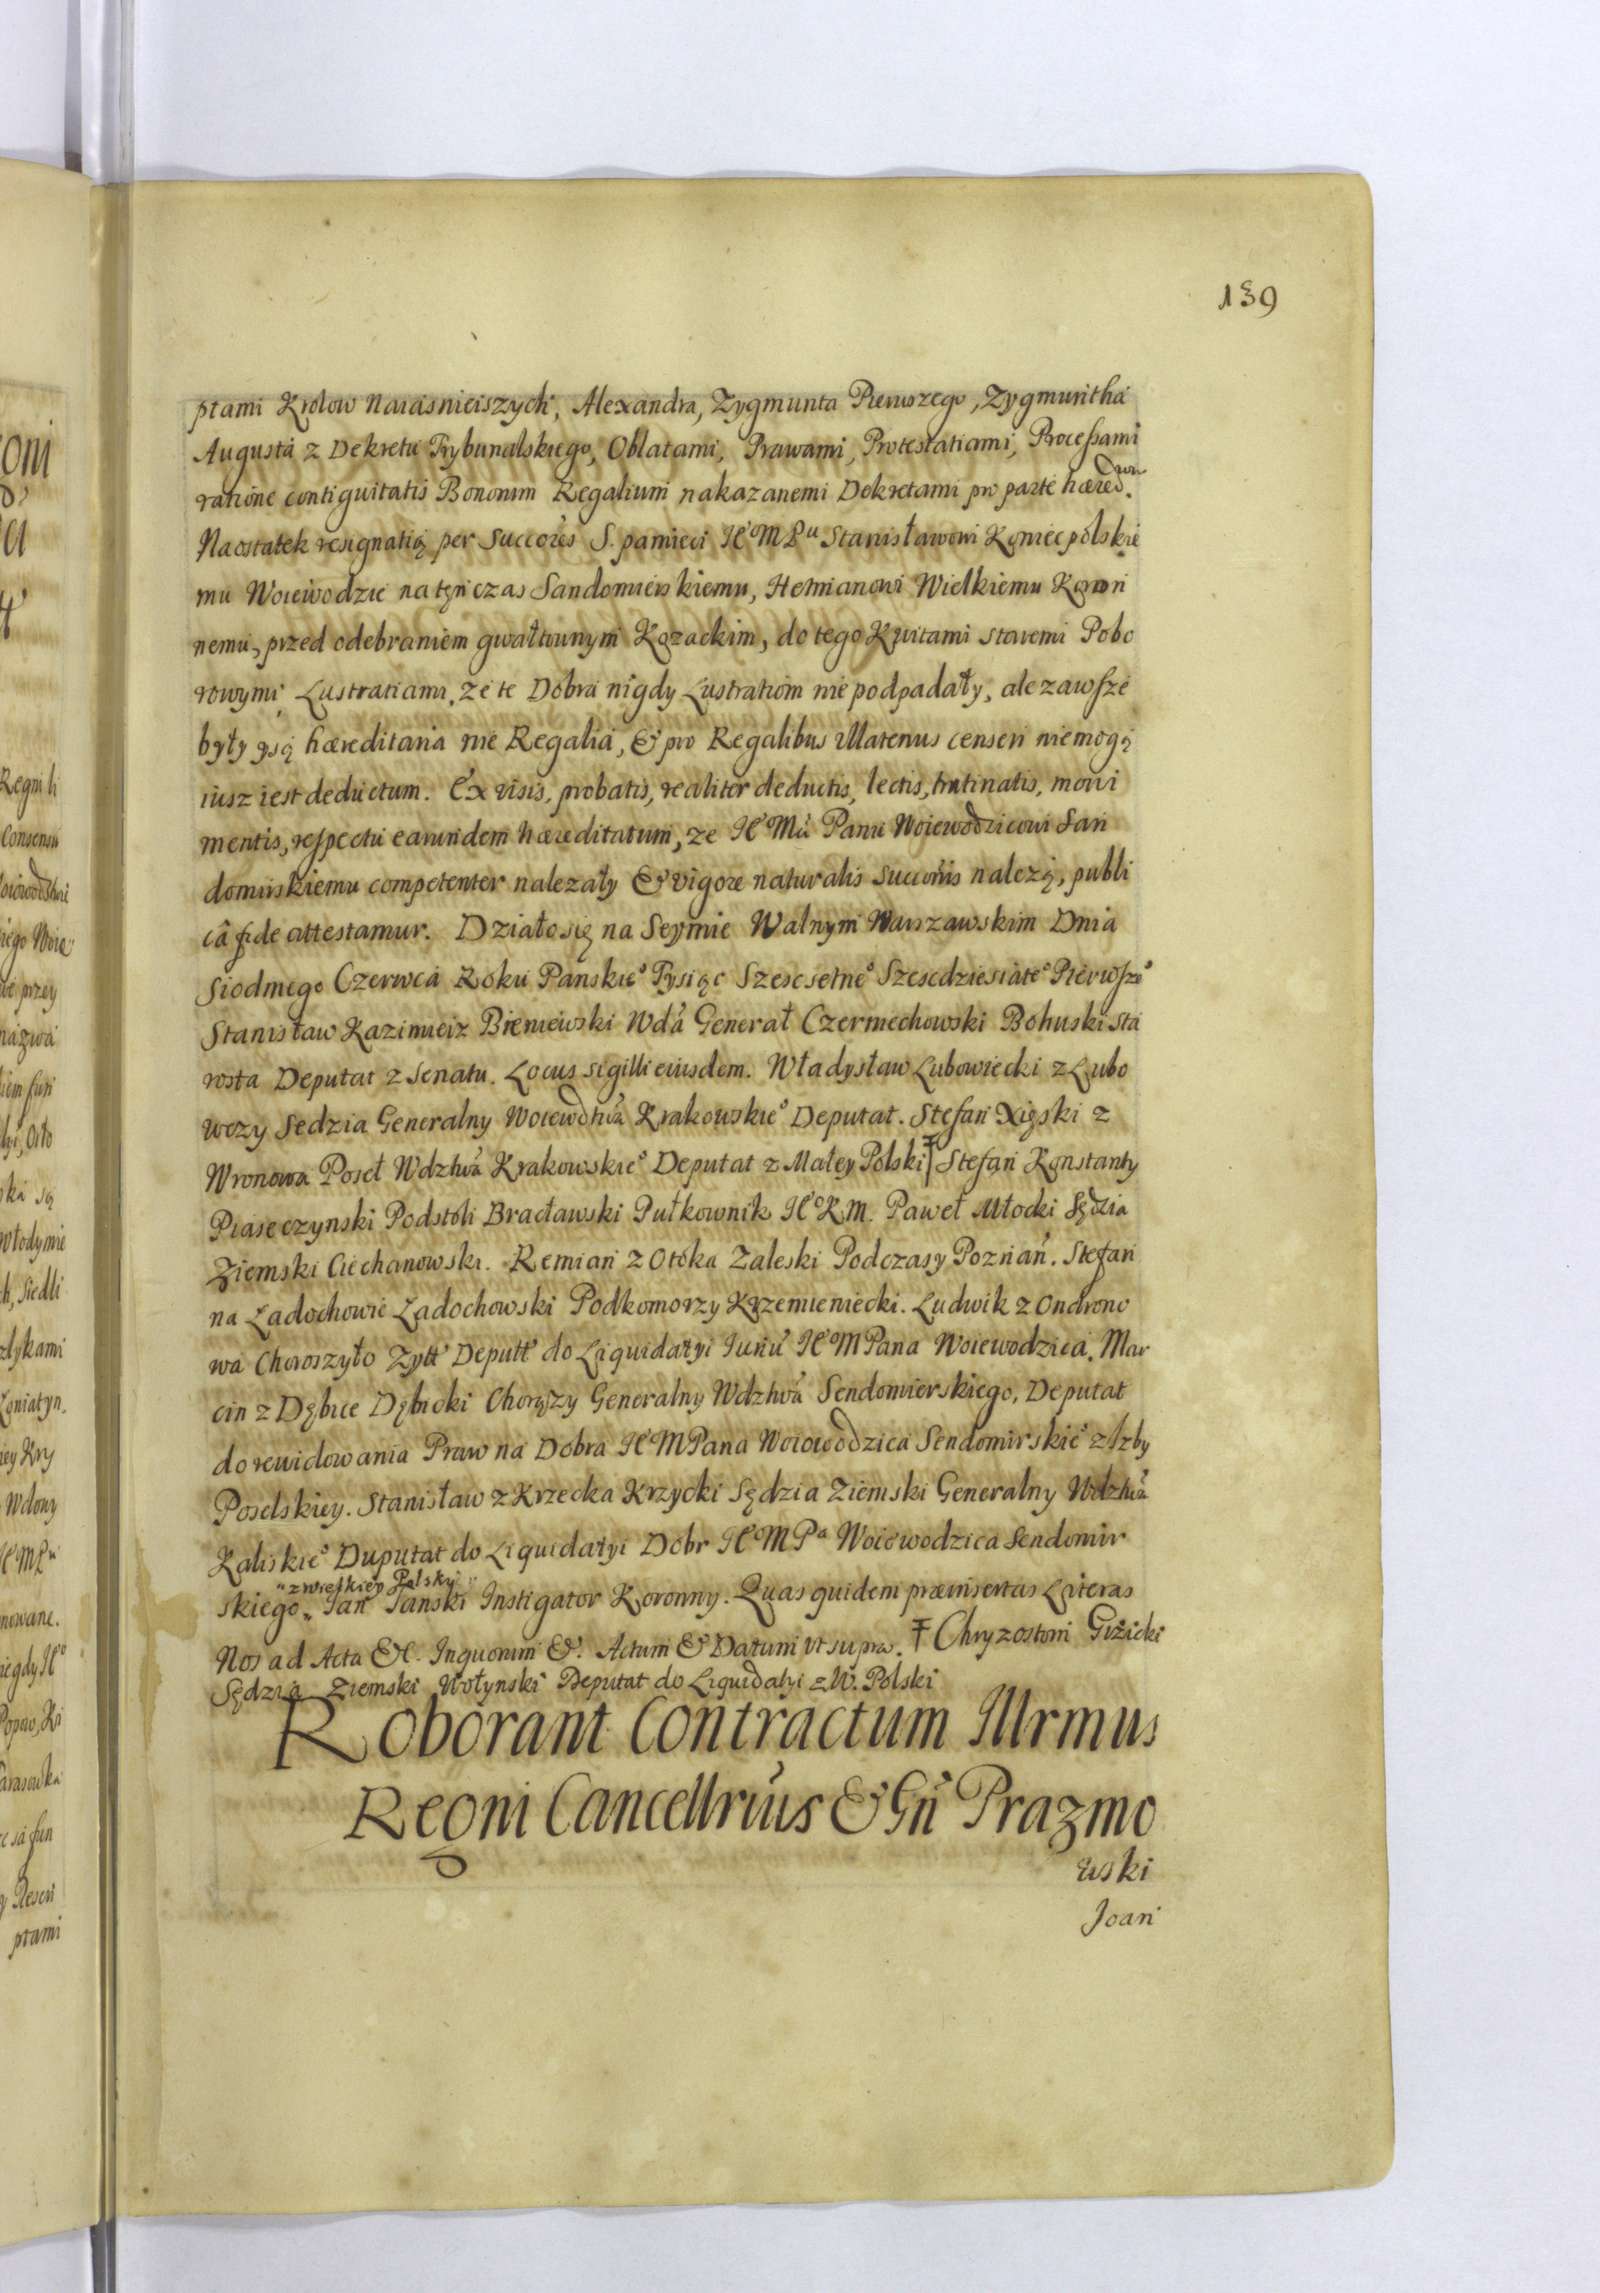 139
ptami Krolow Naiasnieiszych, Alexandra, Zygmunta Pierwszego, Zygmuntha
Augusta z Dekretu Trybunalskiego, Oblatami, Prawami, Protestatiami, Processami
ratione contiguitatis Bonorum Regalium nakazanemi Dekretami pro parte hæred.
Naostatek resignatią per Succores S. pamieci Je͠o M Pu Stanisławowi Koniecpolskie
mu Woiewodzie natęnczas Sandomierskiemu, Hetmanowi Wielkiemu Koron
nemu, przed odebraniem gwałtownym Kozackim, do tego Kwitami staremi Pobo
rowymi, Lustratiami, ze te Dobra nigdy Lustratiom nie podpadały, ale zawsze
były y są hæreditaria nie Regalia, & pro Regalibus ullatenus censeri niemogą
iusz iest deductum. Ex visis, probatis, realiter deductis, lectis, trutinatis, moni
mentis, respectu earundem hæreditatum, ze Je͠ Mu Panu Woiewodzicowi San
domirskiemu competenter nalezały & vigore naturalis succonis nalezą, publi
câ fide attestamur. Działo się na Seymie Walnym Warszawskim Dnia
Siodmego Czerwca Roku Panskieo Tysiąc Szescsetneo Szescdziesiąteo Pierwszeo
Stanisław Kazimierz Bieniewski Wda Generał Czerniechowski Bohuski Sta
rosta Deputat z Senatu. Locus sigilli eiusdem. Władysław Lubowiecki z Lubo
wczy Sedzia Generalny Woiewdtwa Krakowskieo Deputat. Stefan Xięski z
Wronowa Poseł Wdztwa Krakowskieo Deputat z Małey Polski Stefan Konstanty
Piaseczynski Podstoli Bracławski Pułkownik Je͠o K M. Paweł Młocki Sędzia
Ziemski Ciechanowski. Remian z Otoka Zaleski Podczasy Poznań. Stefan
na Ładochowie Ładochowski Podkomorzy Krzemieniecki. Ludwik z Ondrono
wa Choroszyło Zytt Deputt do Liquidatyi Iuriu Je͠o M Pana Woiewodzica. Mar
cin z Dębice Dębicki Chorązy Generalny Wdztwa Sendomierskiego, Deputat
do rewidowania Praw na Dobra Je͠ M Pana Woiowodzica Sendomirskieo z Izby
Poselskiey. Stanisław z Krzecka Krzycki Sędzia Ziemski Generalny Wdztwa
Kaliskieo Duputat do Liquidatyi Dobr Je͠o M Pa Woiewodzica Sendomir
z wielkiey Polsky
skiego Jan Tanski Instigator Koronny. Quas quidem præinsertas Literas
Nos ad Acta &c. Inquorum &. Actum & Datum vt supra. Chryzostom Giżicki
Sędzia Ziemski Wołynski Deputat do Liquidatyi z W. Polski
Roborant Contractum Illrmus
Regni Cancellrius & Gn Prazmo
wski
Joan